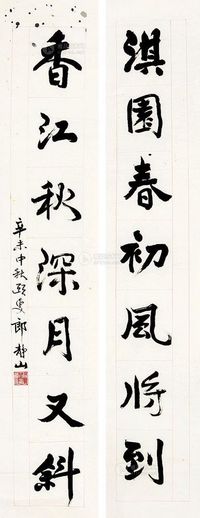 淇園春初風將到
香江秋深月又斜
辛未中秋
郎静山